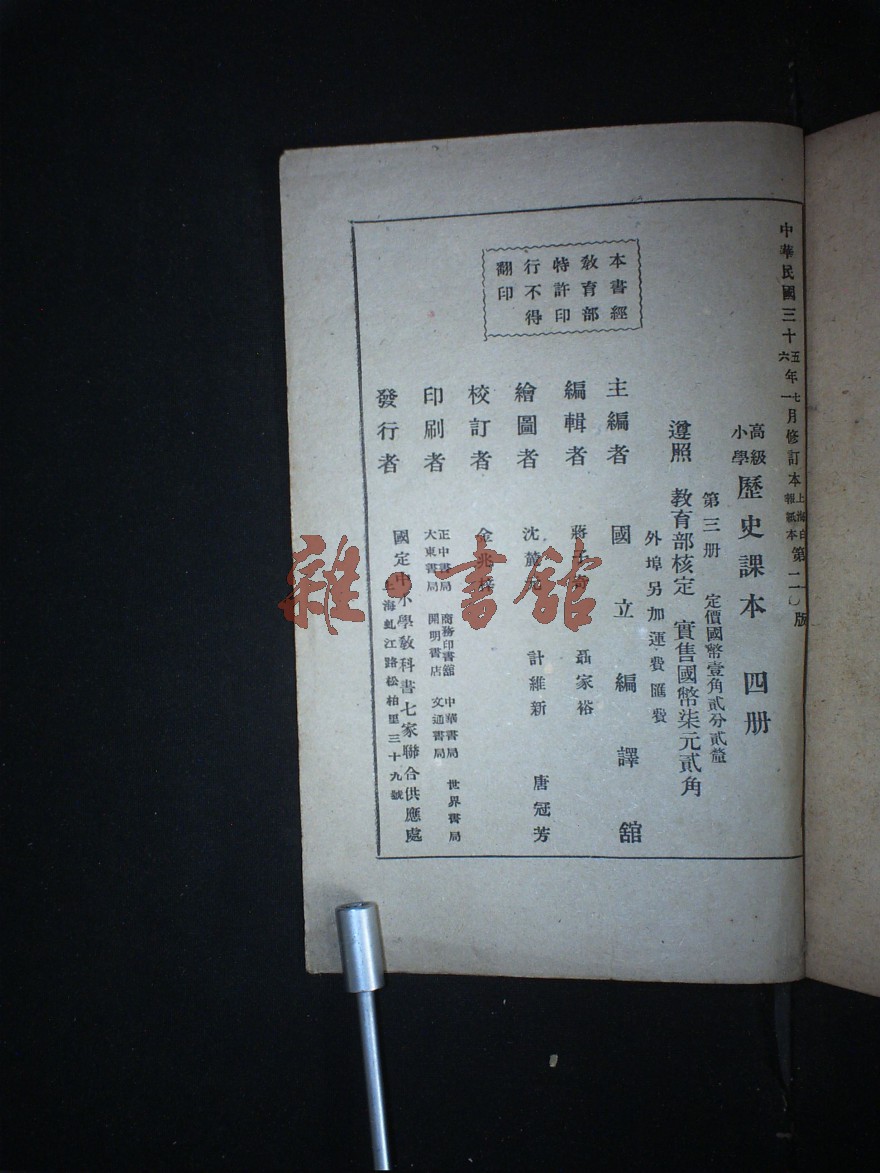 中華民國三十五年七月修訂本上海白報紙本第二一〇版
六 一
高級小學歷史課本 四册
第三册 定價國幣壹角貳分貳釐
遵照 教育部核定 實售國幣柒元貳角
外埠另加運費匯費
主編者 國立編譯館
編輯者 蔣子奇 聶家裕
繪圖者 沈麓元 計維新 唐冠芳
校訂者 金兆梓
印刷者 正中書局 商務印書館 中華書局 世界書局
大東書局 開明書店 文通書局
發行者 國定中小學教科書七家聯合供應處
上海虬江路松柏里三十九號
本書經
教育部
特許印
行不得
翻印
雜·書館